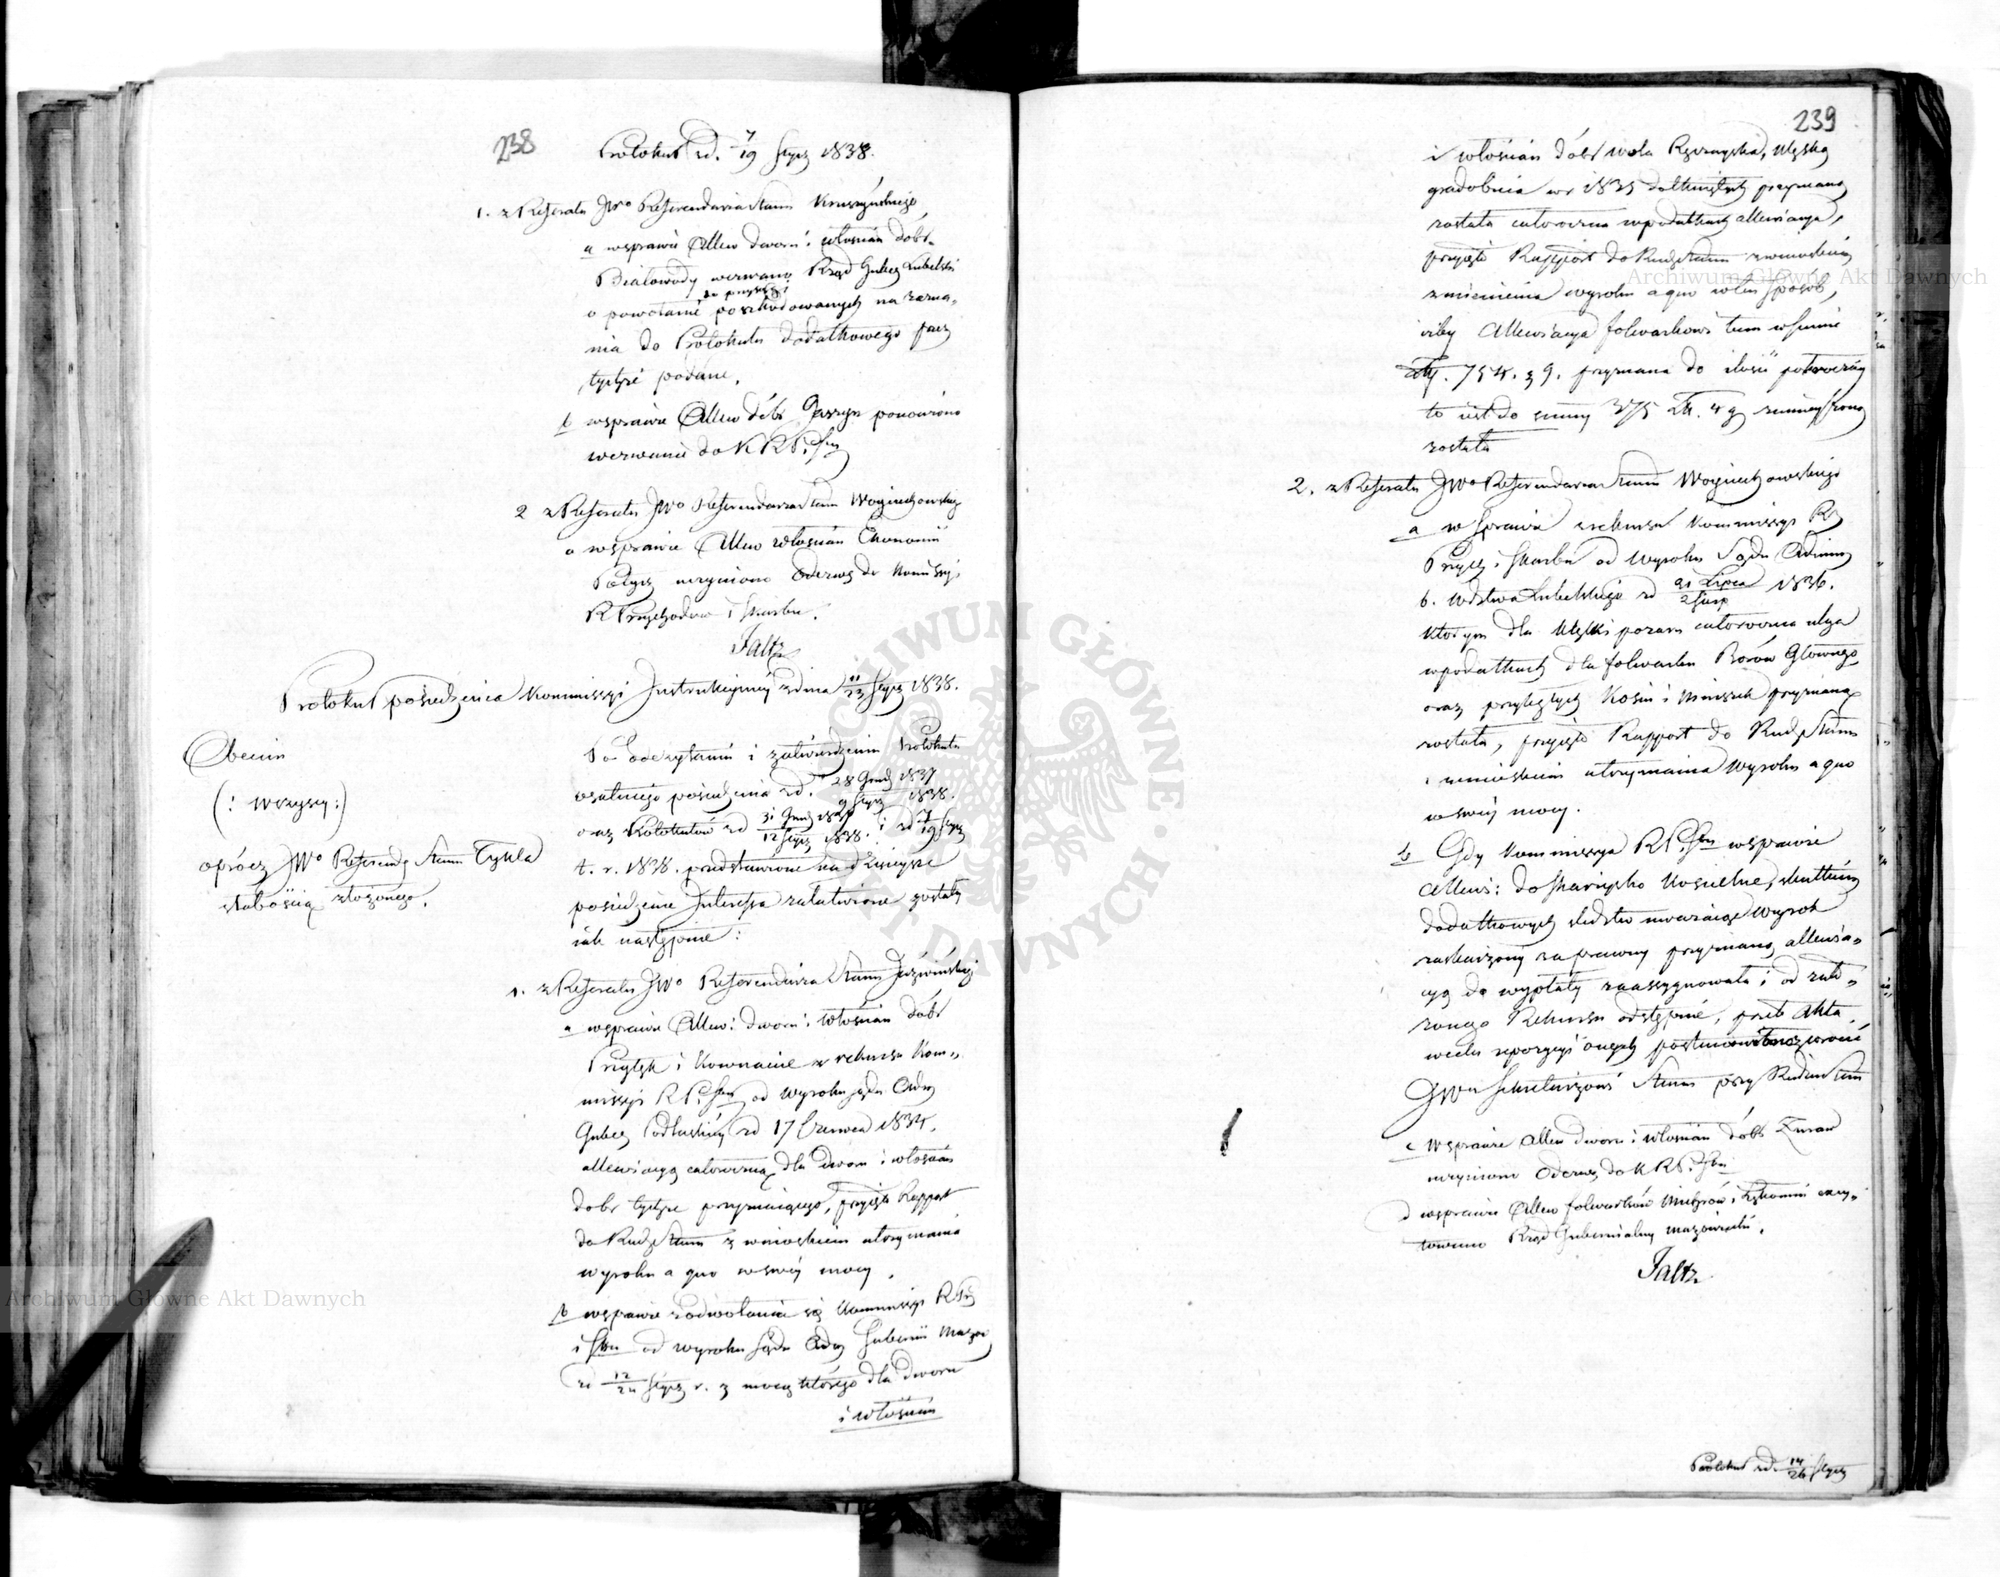 238
Protokuł z d. 7/19 Stycz 1838.
1. z Referatu JWo Referendarza Stanu Kruszyńskiego
a w sprawie Allew dworu i włościan dóbr
Białowody wezwano Rząd Guber Lubelski
do przysięgi
o powołanie poszkodowanych na zezna-
nia do Protokułu dodatkowego przez
tychże podane.
b w sprawie Allew dóbr ponowiono
wezwanie do K R P. Sku
2 z Referatu JWo Referendarza Stanu Woyciechowskiego
a w sprawie Allew włościan Ekonomii
uczyniono Odezwę do Kommissyi
R Przychodów i Skarbu.
Faltz
Protokuł posiedzenia Kommissyi Instrukcyjnej z dnia 11/23 Stycz 1838.
Obecni
(: wszyscy :)
oprócz JWo Referend Stanu Cykla
słabością złożonego.
Po odczytaniu i zatwierdzeniu Protokułu
ostatniego posiedzenia z d. 28 Grud 1837 / 9 Stycz 1838.
oraz Protokułów z d 31 Grud 1837 / 12 Stycz 1838. i z d 7/19 Stycz
t. r. 1838. przedstawione na dzisiejsze
posiedzenie Interessa załatwione zostały
jak następnie:
1. z Referatu JWo Referendarza Stanu Juźwińskiego
a w sprawie Allew: dworu i włościan dóbr
Przytyk i Kownacie z rekursu Kom-
missyi R P. Sku od wyroku Sądu Adm
Guber Podlaskiey z d 17 Czerwca 1834.
allewiacyą całoroczną dla dworu i włościan
dóbr tychże przyznaiącego, przyjęto Rapport
do Rady Stanu z wnioskiem utrzymania
wyroku a quo w swéy mocy.
b w sprawie z odwołania się Kommissyi R Prz
i Sku od wyroku Sądu Adm Gubernii Mazow
z d 12/24 Stycz r. z mocą którego dla dworu
i włościan
239
i włościan dóbr Wola klęską
gradobicia w r 1835 dotkniętych przyznaną
została całoroczna w podatkach allewiacya,
przyjęto Rapport do Rady Stanu z wnioskiem
zmienienia wyroku a quo w ten sposób,
iżby Allewiacya folwarkowi tem w summie
Złtp. 754. g 9. przyznana do ilości
to iest do summy 375 Zł. 4 g zmnieyszoną
została
2. z Referatu JWo Referendarza Stanu Woyciechowskiego
a w sprawie z rekursu Kommissyi R
Przych i Skarbu od wyroku Sądu Admin
b. Wdztwa Lubelskiego z d 21 Lipca / 2 Sierp 1836.
którym dla klęski pożaru całoroczna ulga
w podatkach dla folwarku Borów Głównego
oraz przyległych Kosin i Mniszek przyznaną
została, przyjęto Rapport do Rady Stanu
z wnioskiem utrzymania Wyroku a quo
w swéy mocy.
b Gdy Kommissya R P. Sku w sprawie
Allewi: do Skaryszko Kościelne, skutkiem
dodatkowych śledztw uważaiąc Wyrok
zaskarżony za prawny przyznaną allewia-
cyą do wypłaty zaassygnowała i od zało-
żonego Rekursu odstępuie, przeto Akta
wcelu repozycyi onych postanowiono zwrócić
JWu Sekretarzowi Stanu przy Radzie Stanu
c W sprawie Allew dworu i włościan dóbr Żuraw
uczyniono Odezwę do K R P. Sku
d w sprawie Allew folwarków i excy-
towano Rząd Gubernialny Mazowiecki.
Faltz
Protokuł z d. 14/26 Stycz
ARCHIWUM GŁÓWNE AKT DAWNYCH
Archiwum Główne Akt Dawnych
Archiwum Główne Akt Dawnych